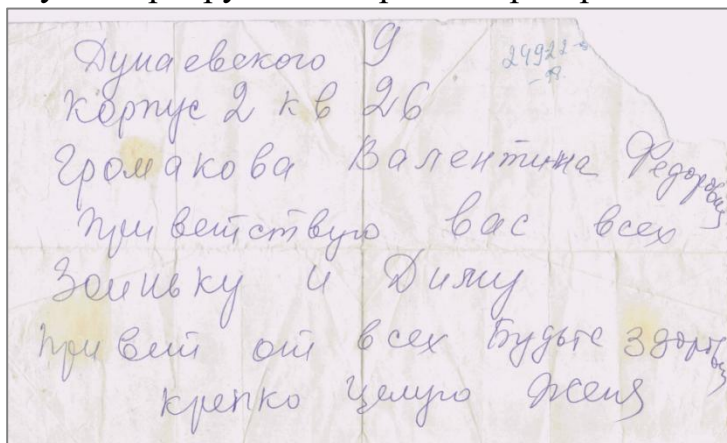 Дунаевского 9
24922
Корпус 2 кв 26
Громакова Валентина Федоровна
Приветствую вас всех
Зоиньку и Диму
Привет от всех Будьте здоровы
крепко целую Женя